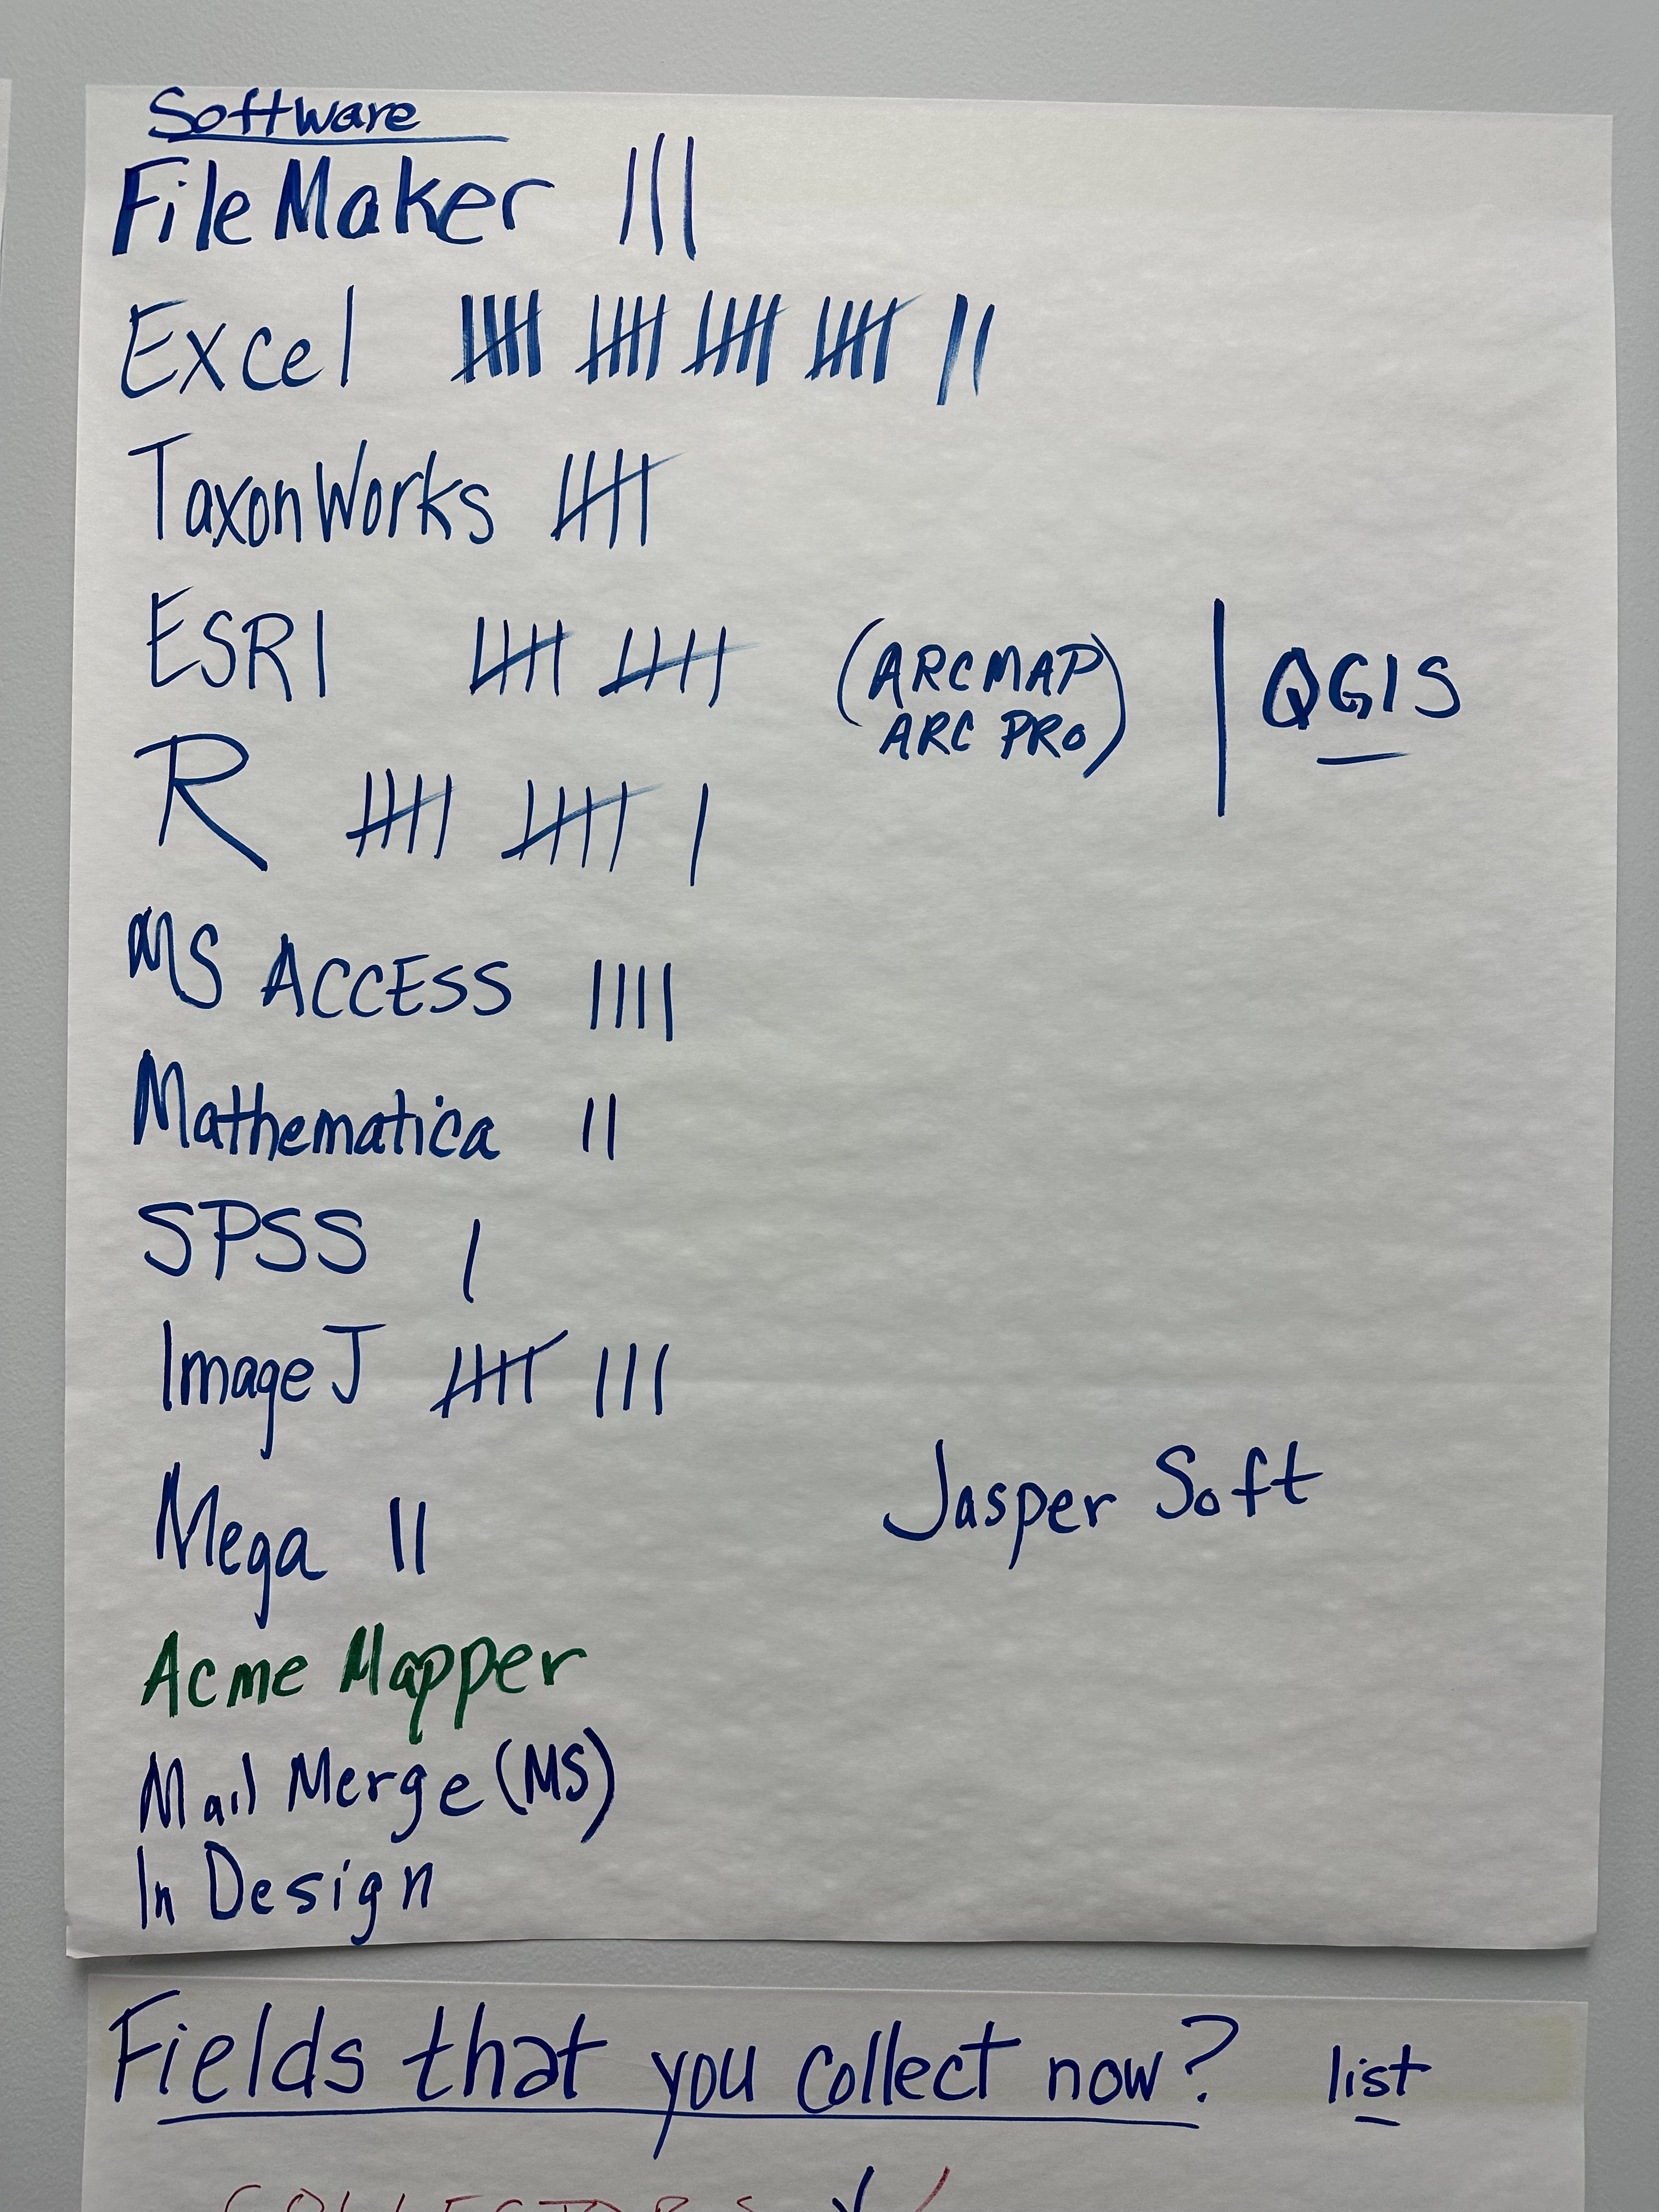 Software
FileMaker |||
Excel 卌 卌 卌 卌 ||
TaxonWorks 卌
ESRI 卌 卌 (ARCMAP ARC PRO) | QGIS
R 卌 卌 |
MS ACCESS ||||
Mathematica ||
SPSS |
ImageJ 卌 |||
Mega ||
Jasper Soft
Acme Mapper
Mail Merge (MS)
In Design
Fields that you collect now? list
COLLECTORS